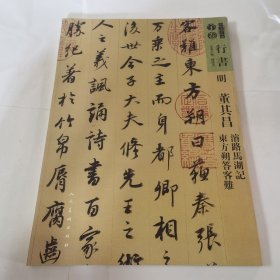 行書
明
董其昌
濬路馬湖記
東方朔答客難
客難東方朔曰蘇秦張
萬乘之主而身都卿相之
後世今子大夫修先王之
人之義諷誦詩書百家
勝紀著於竹帛脣腐齒